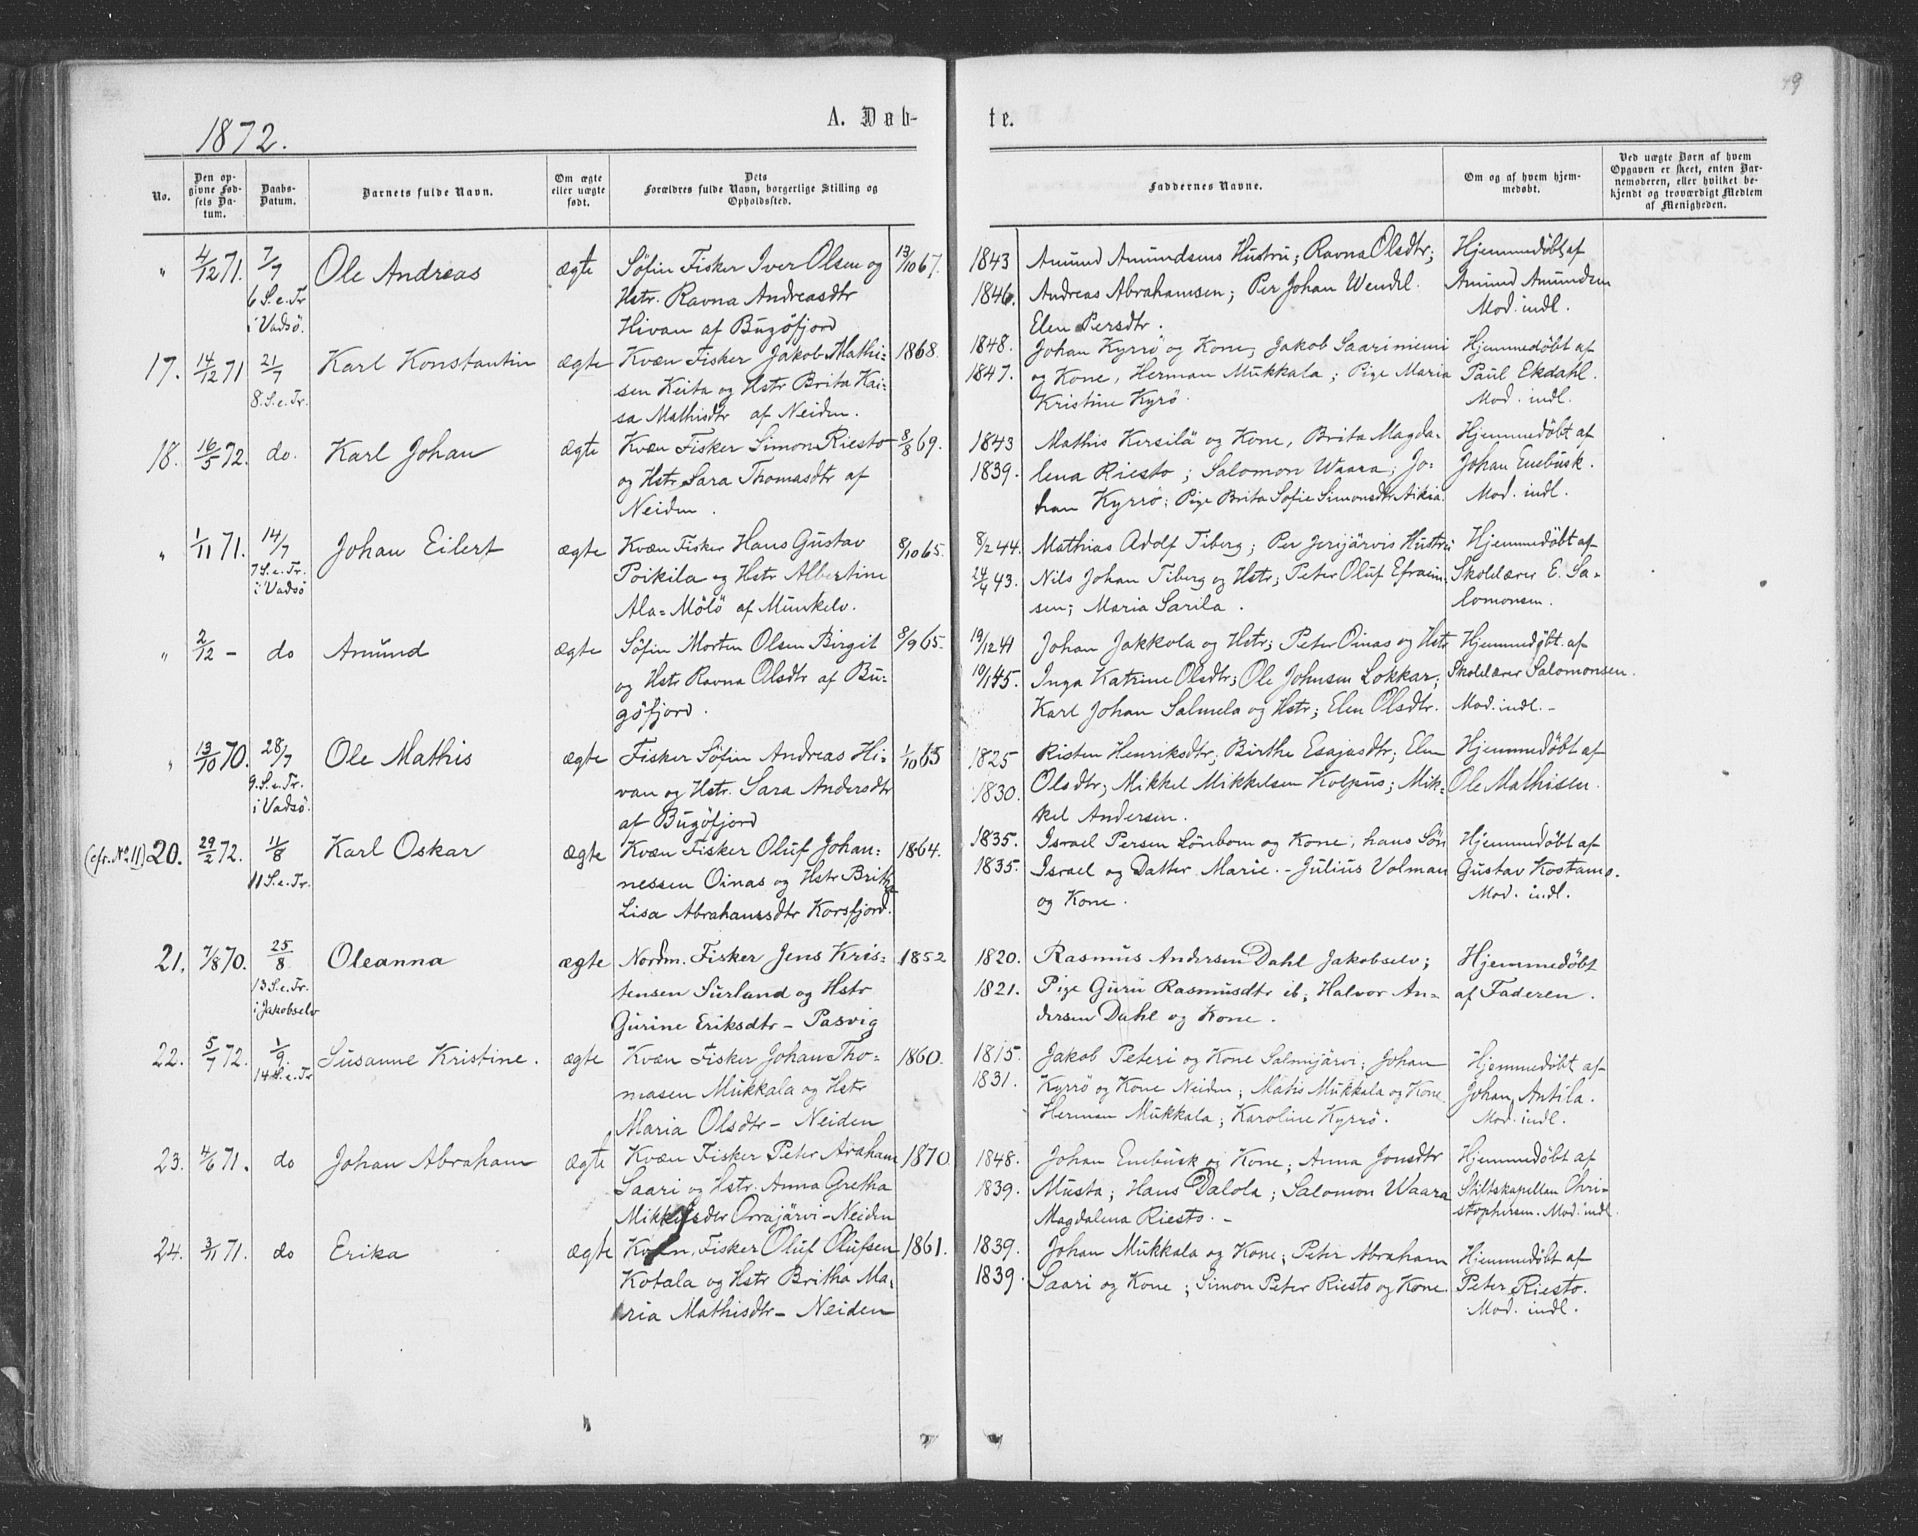 49
1872.
A. Døb-
te.
No.
Den op-
givne Fød-
sels Da-
tum.
Daabs-
Datum.
Barnets fulde Navn.
Om ægte
eller uægte
født.
Dets
Forældres fulde Navn, borgerlige Stilling og
Opholdssted.
Faddernes Navne.
Om og af hvem hjem-
medøbt.
Ved uægte Børn af hvem
Opgaven er skeet, enten Bar-
nemoderen, eller hvilket be-
kjendt og troværdigt Medlem
af Menigheden.
" 4/12 71. 7/7 Ole Andreas ægte Søfin Fisker Iver Olsen og 13/10 67. 1843 Amund Amundsens Hustru; Ravna Olsdtr; Hjemmedøbt af
6 S. e. Tr Hstr. Ravna Andreasdtr 1846. Andreas Abrahamsen; Per Johan Wendel. Amund Amundsen
i Vadsø. Hivan af Bugøfjord Elen Persdtr. Mod. indl.
17. 14/12 71 21/7 Karl Konstantin ægte Kvæn Fisker Jakob Mathi- 1868. 1848. Johan Kyrrö og Kone, Jakob Saarinieini Hjemmedøbt af
8. S. e. Tr. sen Keita og Hstr Brita Kai- 1847. og Kone, Herman Mukkala; Pige Maria Paul Ekdahl.
sa Mathisdtr af Neiden. Kristine Kyrö. Mod. indl.
18. 16/5 72. do. Karl Johan ægte Kvæn Fisker Simon Riesto 8/8 69. 1843 Mathis Kersilä og Kone, Brita Magda- Hjemmedøbt af
og Hstr Sara Thomasdtr af 1839. lena Riesto; Salomon Waara; Jo- Johan Enebusk.
Neiden. han Kyrrö; Pige Brita Sofie Simonsdtr Aikia. Mod. indl.
" 1/11 71. 14/7 Johan Eilert ægte Kvæn Fisker Hans Gustav 8/10 65. 8/2 44. Matthias Adolf Tiberg; Per Jerijärvis Hustru Hjemmedøbt af
7 S. e. Tr. Poikila og Hstr Albertine 24/4 43. Nils Johan Tiberg og Hstr; Peter Oluf Efraim- Skolelærer E. Sa-
i Vadsø Ala-Mölö af Munkelv. sen; Maria Sarila. lomonsen.
" 2/12 - do Amund ægte Søfin Morten Olsen Birgit 8/9 65. 19/12 41 Johan Jakkola og Hstr; Peter Oinas og Hstr Hjemmedøbt af
og Hstr Ravna Olsdtr af Bu- 19/1 45. Inga Katrine Olsdtr; Ole Johnsen Lokkar; Skolelærer Salomonsen.
gøfjord. Karl Johan Salmela og Hstr; Elen Olsdtr. Mod. indl. -
" 13/10 70. 28/7 Ole Mathis ægte Fisker Søfin Andreas Hi- 1/10 65 1825 Risten Henriksdtr; Birthe Esajasdtr; Elen Hjemmedøbt af
9. S. e. Tr. van og Hstr. Sara Andersdtr 1830. Olsdtr; Mikkel Mikkelsen Kolpus; Mik- Ole Mathisen.
i Vadsø. af Bugøfjord kel Andersen.
(cfr. No 11) 20. 29/2 72. 11/8 Karl Oskar ægte Kvæn Fisker Oluf Johan- 1864. 1835. Israel Persen Lönbom og Kone, hans Søn Hjemmedøbt af
11 S. e. Tr. nessen Oinas og Hstr Britha 1835. Israel og Datter Marie. - Julius Volman Gustav Kostamo.
Lisa Abrahamsdtr Korsfjord. og Kone. Mod. indl.
21. 7/8 70. 25/8 Oleanna ægte Nordm. Fisker Jens Kris- 1852 1820. Rasmus Andersen Dahl Jakobselv; Hjemmedøbt
13 S. e. Tr. tensen Surland og Hstr 1821. Pige Guru Rasmusdtr ib, Halvor An- af Faderen.
i Jakobselv Gurine Eriksdtr - Pasvig dersen Dahl og Kone.
22. 5/7 72. 1/9. Susanne Kristine. ægte Kvæn Fisker Johan Tho- 1860. 1815. Jakob Peteri og Kone Salmijärvi; Johan Hjemmedøbt af
14 S. e. Tr masen Mukkala og Hstr 1831. Kyrrö og Kone Neiden; Matis Mukkala og Kone Johan Antila.
Maria Olsdtr - Neiden Herman Mukkala; Karoline Kyrrö. Mod. indl.
23. 4/6 71. do Johan Abraham ægte Kvæn Fisker Peter Abraham 1870. 1848. Johan Enebusk og Kone; Anna Jonsdtr Hjemmedøbt af
Saari og Hstr. Anna Gretha 1839. Musta; Hans Dalola; Salomon Waara Stiftskapellan Chri-
Mikkelsdtr Orrajärvi - Neiden Magdalena Riesto. - stophersen. Mod. indl.
24. 3/11 71. do Erika ægte Kvæn. Fisker Oluf Olufsen 1861. 1839. Johan Mukkala og Kone; Peter Abraham Hjemmedøbt af
Kotala og Hstr Britha Ma- 1839. Saari og Kone; Simon Peter Riesto og Kone. Peter Riesto.
ria Mathisdtr - Neiden Mod. indl.